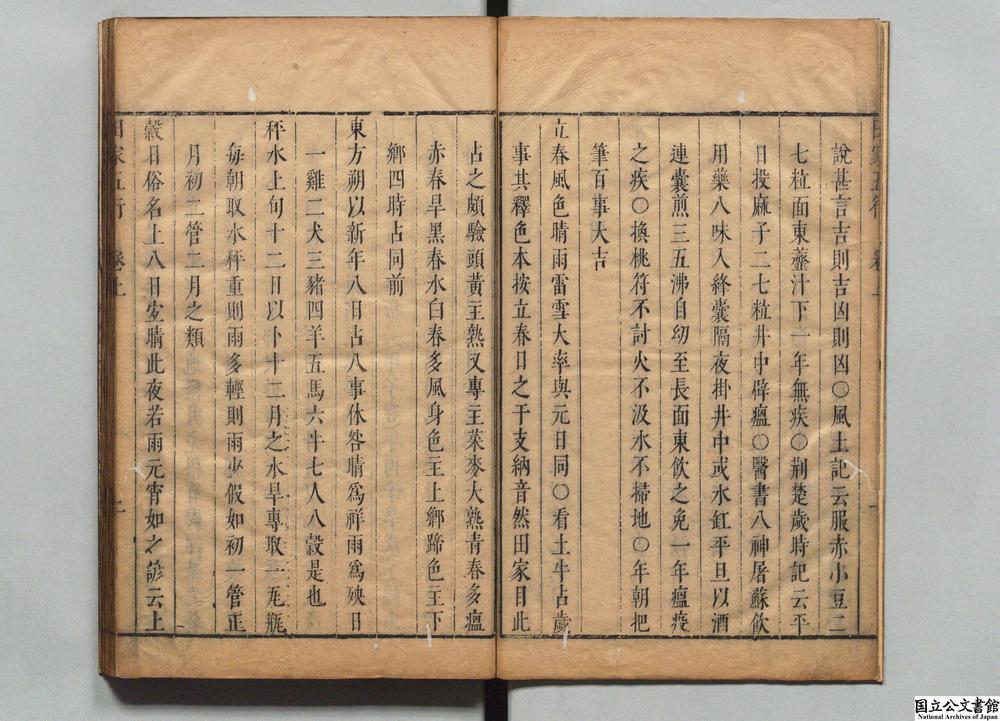 說甚言吉則吉凶則凶○風土記云服赤小豆二
七粒面東虀汁下一年無疾○荆楚歲時記云平
日投麻子二七粒井中辟瘟○醫書八神屠蘇飲
用藥八味入絳囊隔夜掛井中或水缸平旦以酒
連囊煎三五沸自幼至長面東飲之免一年瘟疫
之疾○換桃符不討火不汲水不掃地○年朝把
筆百事大吉
立春風色晴雨雷雪大率與元日同○看土牛占歲
事其釋色本按立春日之干支納音然田家目此
占之頗驗頭黃主熟又專主菜麥大熟青春多瘟
赤春旱黑春水白春多風身色主上鄉蹄色主下
鄉四時占同前
東方朔以新年八日占八事休咎晴爲祥雨爲殃日
一雞二犬三豬四羊五馬六牛七人八穀是也
秤水上旬十二日以卜十二月之水旱專取一瓦瓶
每朝取水秤重則雨多輕則雨少假如初一管正
月初二管二月之類
穀日俗名上八日安晴此夜若雨元宵如之諺云上
田家五行 卷上
国立公文書館
National Archives of Japan